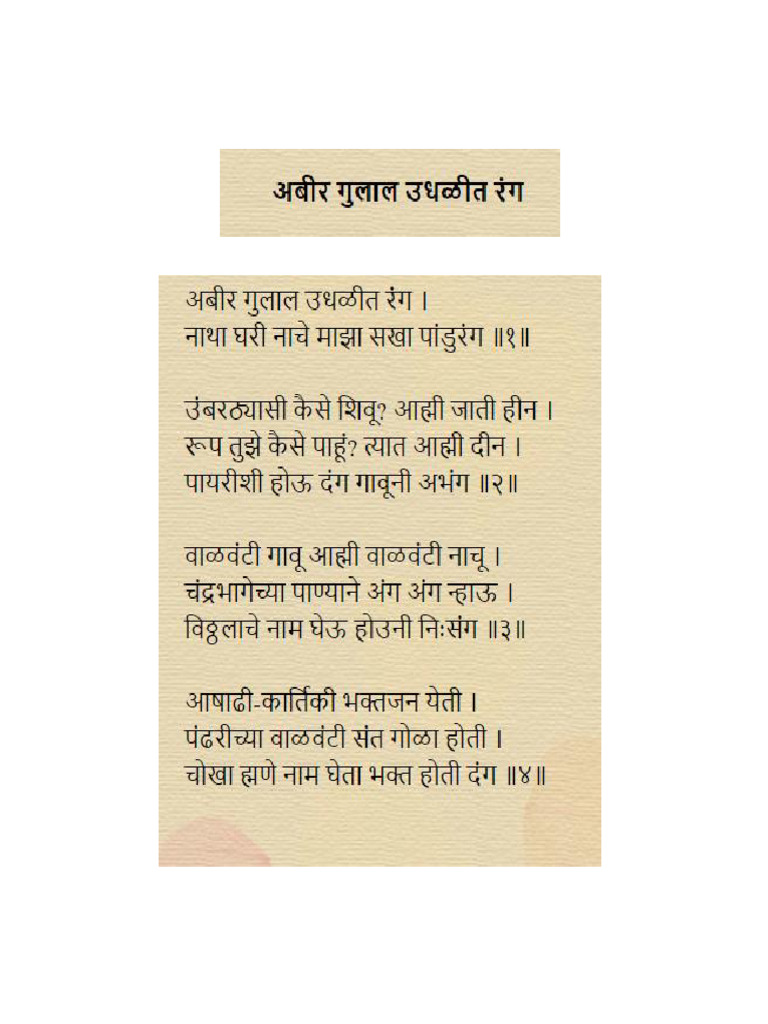 अबीर गुलाल उधळीत रंग
अबीर गुलाल उधळीत रंग ।
नाथा घरी नाचे माझा सखा पांडुरंग ॥१॥
उंबरठ्यासी कैसे शिवू? आह्मी जाती हीन ।
रूप तुझे कैसे पाहूं? त्यात आह्मी दीन ।
पायरीशी होऊ दंग गावूनी अभंग ॥२॥
वाळवंटी गावू आह्मी वाळवंटी नाचू ।
चंद्रभागेच्या पाण्याने अंग अंग न्हाऊ ।
विठ्ठलाचे नाम घेऊ होउनी निःसंग ॥३॥
आषाढी-कार्तिकी भक्तजन येती ।
पंढरीच्या वाळवंटी संत गोळा होती ।
चोखा ह्मणे नाम घेता भक्त होती दंग ॥४॥